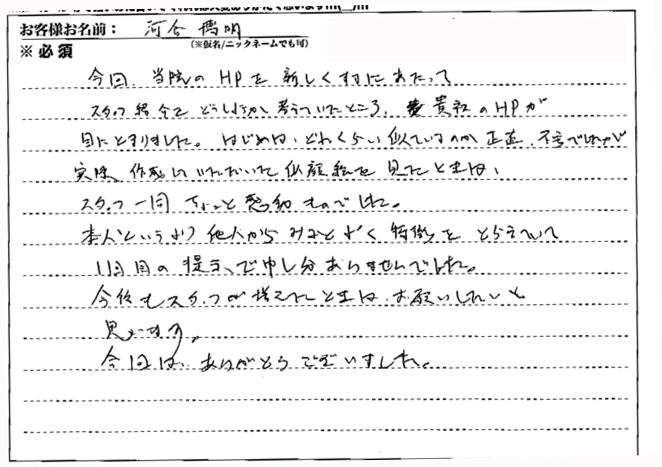 お客様お名前： 河合 博明
※必須 （※仮名/ニックネームでも可）
今回、当院のHPを新しくするにあたって
スタッフ紹介をどうしようか考えていたところ、貴社のHPが
目にとまりました。はじめは、どれくらい似ているのか正直、不安でしたが
実際、作成していただいた似顔絵を見たときは、
スタッフ一同ちょっと感動ものでした。
本人というより他人からみるとよく特徴をとらえていて
1回目の提示で申し分ありませんでした。
今後もスタッフが増えたときは、お願いしたいと
思います。
今回は、ありがとうございました。